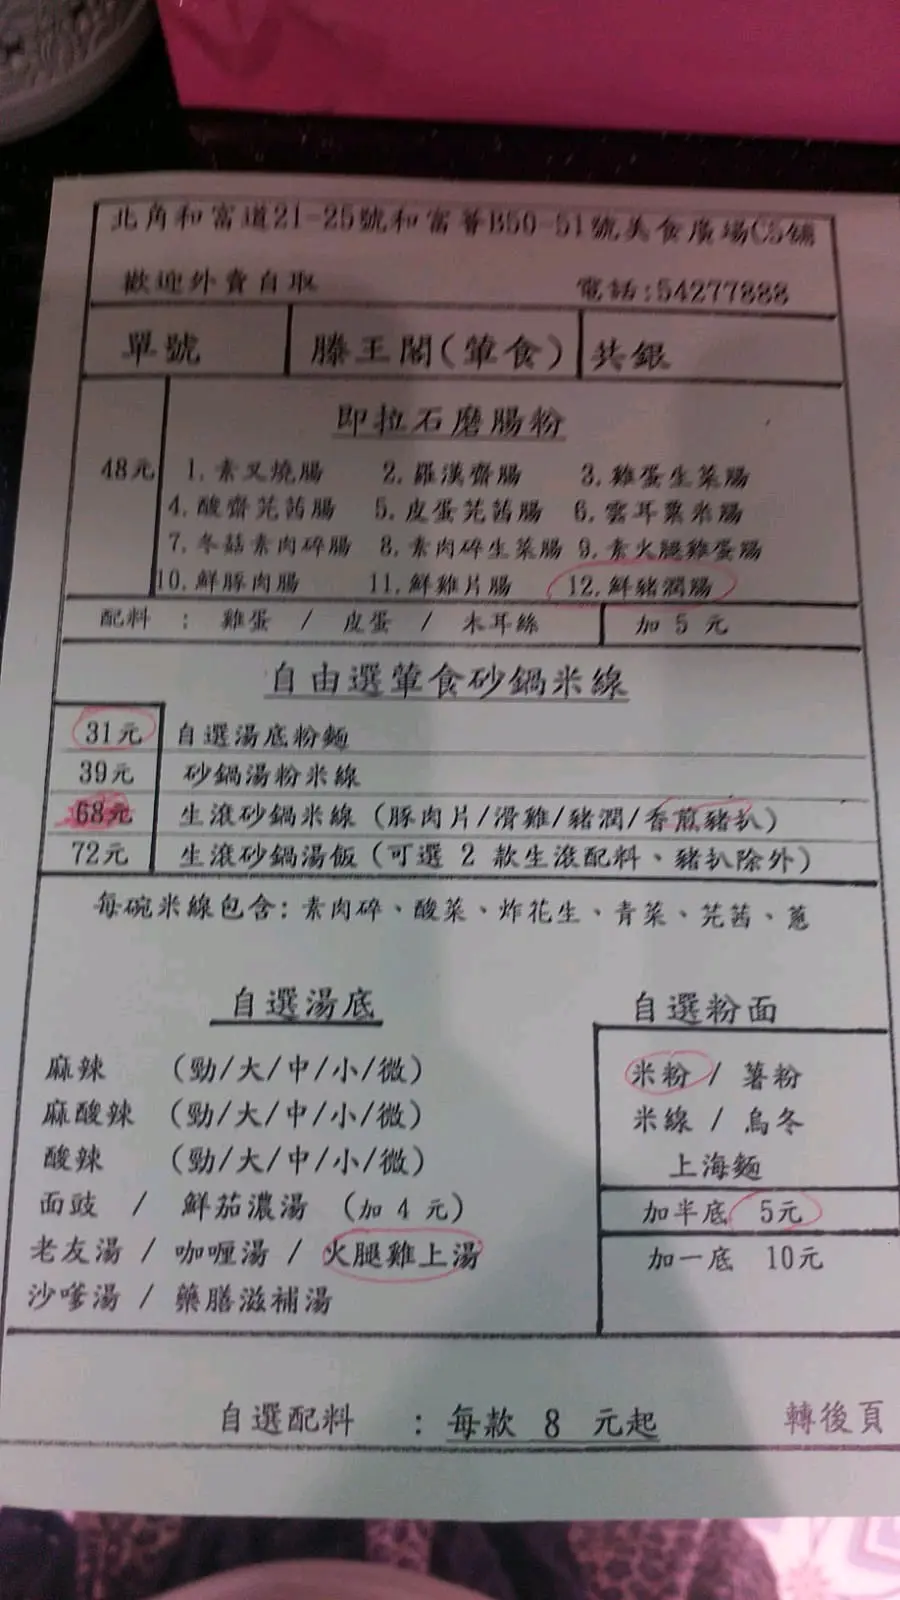 北角和富道21-25號和富薈B50-51號美食廣場C5舖
歡迎外賣自取 電話:54277888
單號 滕王閣(葷食) 共銀
即拉石磨腸粉
48元 1.素叉燒腸 2.羅漢齋腸 3.雞蛋生菜腸
4.酸齋芫茜腸 5.皮蛋芫茜腸 6.雲耳粟米腸
7.冬菇素肉碎腸 8.素肉碎生菜腸 9.素火腿雞蛋腸
10.鮮豚肉腸 11.鮮雞片腸 12.鮮豬潤腸
配料 : 雞蛋 / 皮蛋 / 木耳絲 加 5 元
自由選葷食砂鍋米線
31元 自選湯底粉麵
39元 砂鍋湯粉米線
68元 生滾砂鍋米線 (豚肉片/滑雞/豬潤/香煎豬扒)
72元 生滾砂鍋湯飯 (可選 2 款生滾配料、豬扒除外)
每碗米線包含: 素肉碎、酸菜、炸花生、青菜、芫茜、蔥
自選湯底 自選粉面
麻辣 (勁/大/中/小/微) 米粉 / 薯粉
麻酸辣 (勁/大/中/小/微) 米線 / 烏冬
酸辣 (勁/大/中/小/微) 上海麵
面豉 / 鮮茄濃湯 (加 4 元) 加半底 5元
老友湯 / 咖喱湯 / 火腿雞上湯 加一底 10元
沙嗲湯 / 藥膳滋補湯
自選配料 : 每款 8 元起 轉後頁